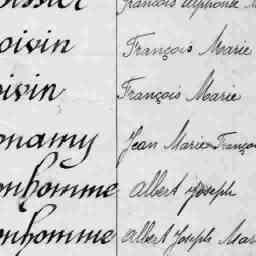 François Alphonse
oivin François Marie
oivin François Marie
onamy Jean Marie François
onhomme Albert Joseph
onhomme Albert Joseph Mar